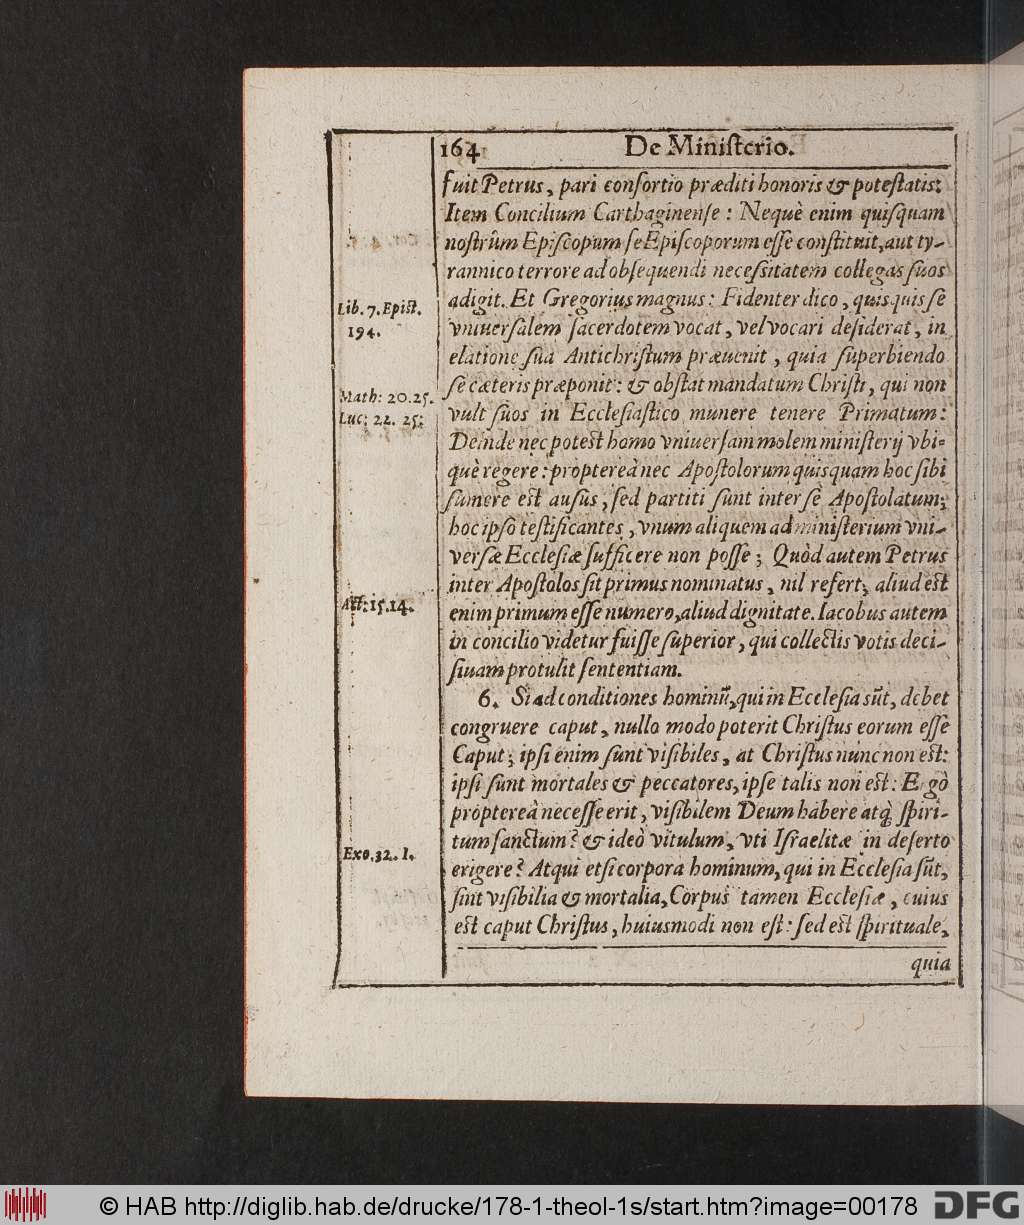 164 De Miniſterio.
fuit Petrus, pari conſortio præditi honoris & poteſtatis:
Item Concilium Carthaginenſe: Nequè enim quiſquam
noſtrûm Epiſcopum ſe Epiſcoporum eſſe conſtituit, aut ty-
rannico terrore ad obſequendi neceſsitatem collegas ſuos
adigit. Et Gregorius magnus: Fidenter dico, quisquis ſe
vniuerſalem ſacerdotem vocat, vel vocari deſiderat, in
elatione ſua Antichriſtum præuenit, quia ſuperbiendo
ſe cæteris præponit: & obſtat mandatum Chriſti, qui non
vult ſuos in Eccleſiaſtico munere tenere Primatum:
Deinde nec poteſt homo vniuerſam molem miniſterij vbi-
què regere: proptereà nec Apoſtolorum quisquam hoc ſibi
ſumere eſt auſus, ſed partiti ſunt inter ſè Apoſtolatum;
hoc ipſo teſtificantes, vnum aliquem ad miniſterium vni-
verſæ Eccleſiæ ſufficere non poſſe; Quòd autem Petrus
inter Apoſtolos ſit primus nominatus, nil refert; aliud eſt
enim primum eſſe numero, aliud dignitate. Iacobus autem
in concilio videtur fuiſſe ſuperior, qui collectis votis deci-
ſiuam protulit ſententiam.
6. Si ad conditiones hominū, qui in Eccleſia sūt, debet
congruere caput, nullo modo poterit Chriſtus eorum eſſe
Caput; ipſi enim ſunt viſibiles, at Chriſtus nunc non eſt:
ipſi ſunt mortales & peccatores, ipſe talis non eſt: Ergò
proptereà neceſſe erit, viſibilem Deum habere atq́; ſpiri-
tum ſanctum? & ideò vitulum, vti Iſraelitæ in deſerto
erigere? Atqui etſi corpora hominum, qui in Eccleſia sūt,
ſint viſibilia & mortalia, Corpus tamen Eccleſiæ, cuius
eſt caput Chriſtus, huiusmodi non eſt: ſed eſt ſpirituale,
quia
Lib. 7. Epiſt.
194.
Math: 20. 25.
Luc: 22. 25:
Act: 15. 14.
Exo. 32. 1.
© HAB http://diglib.hab.de/drucke/178-1-theol-1s/start.htm?image=00178
DFG